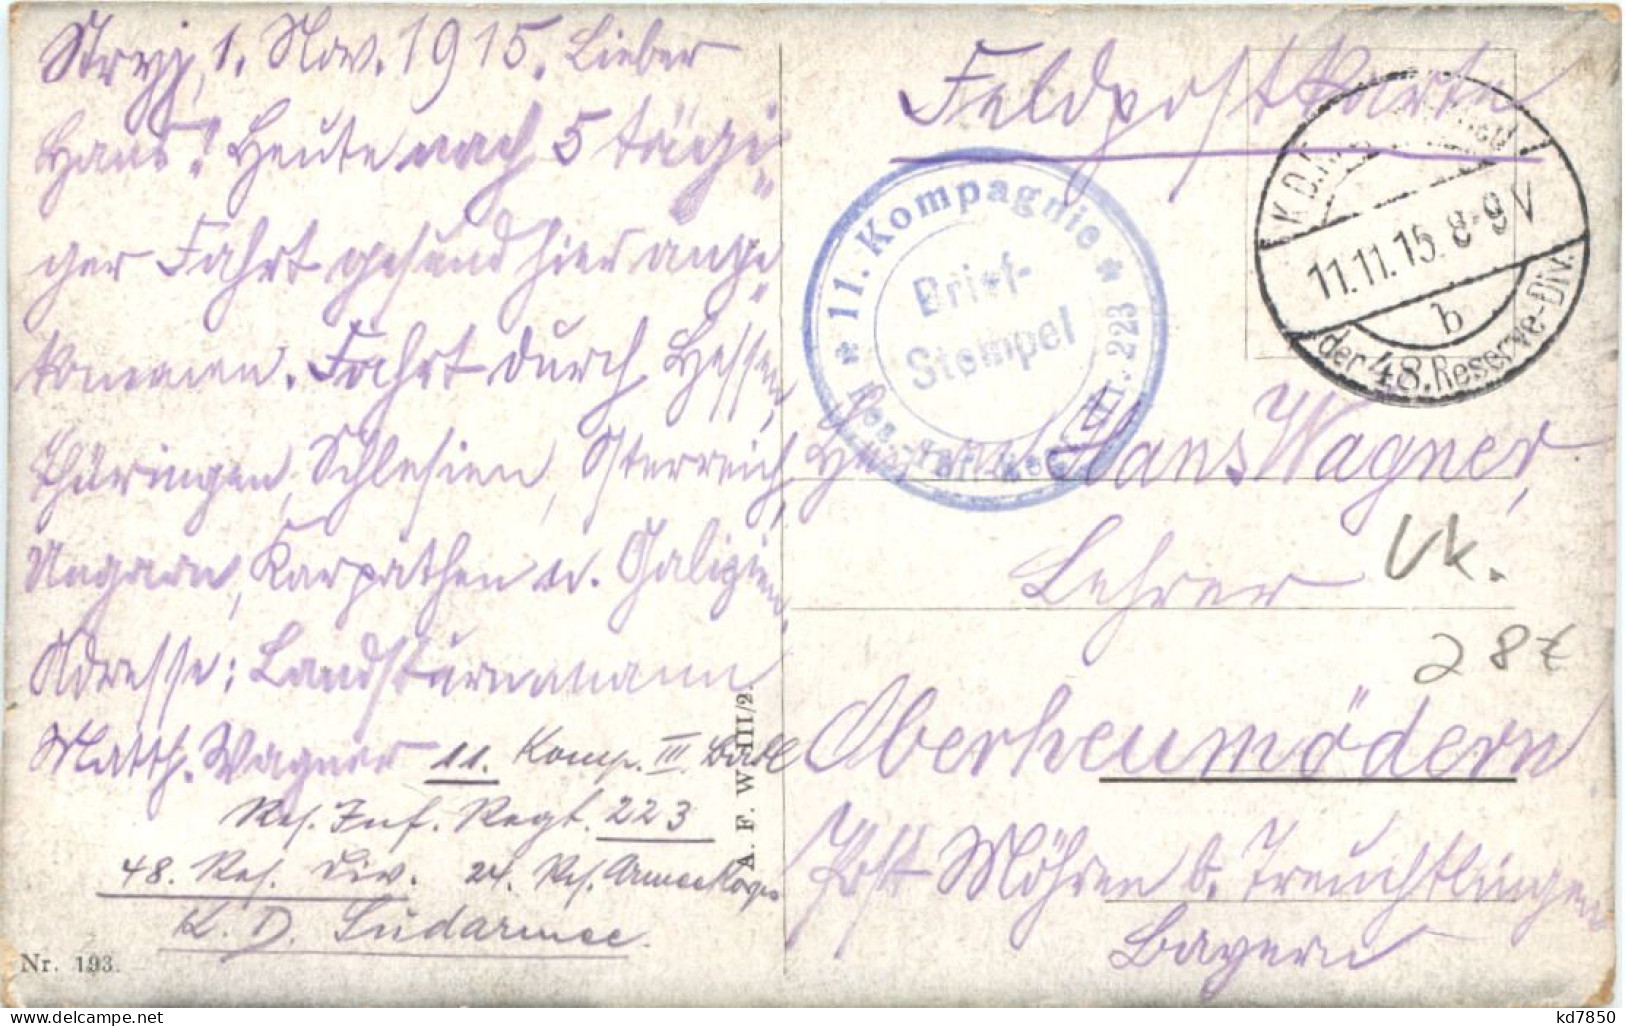 Stryj, 1. Nov. 1915. Lieber
Hans! Heute nach 5 tägi-
ger Fahrt gesund hier ange-
kommen. Fahrt durch Hessen,
Thüringen, Schlesien, Österreich,
Ungarn, Karpathen u. Galizien.
Adresse: Landsturmmann
Matth. Wagner 11. Komp. III. Batl
Res. Inf. Regt. 223
48. Res. Div. 24. Res. Armeekorps
K. D. Südarmee.
Nr. 193.
A. F. W. III/2.
Feldpostkarte
* 11. Kompagnie *
Res. Inf. Regt. Nr. 223
Brief-
Stempel
K.D.
11.11.15. 8-9 V
b
der 48. Reserve-Div.
Herrn Hans Wagner,
Lehrer
Vk.
28t
Oberheumödern
Post Möhren b. Treuchtlingen
Bayern
kd7850